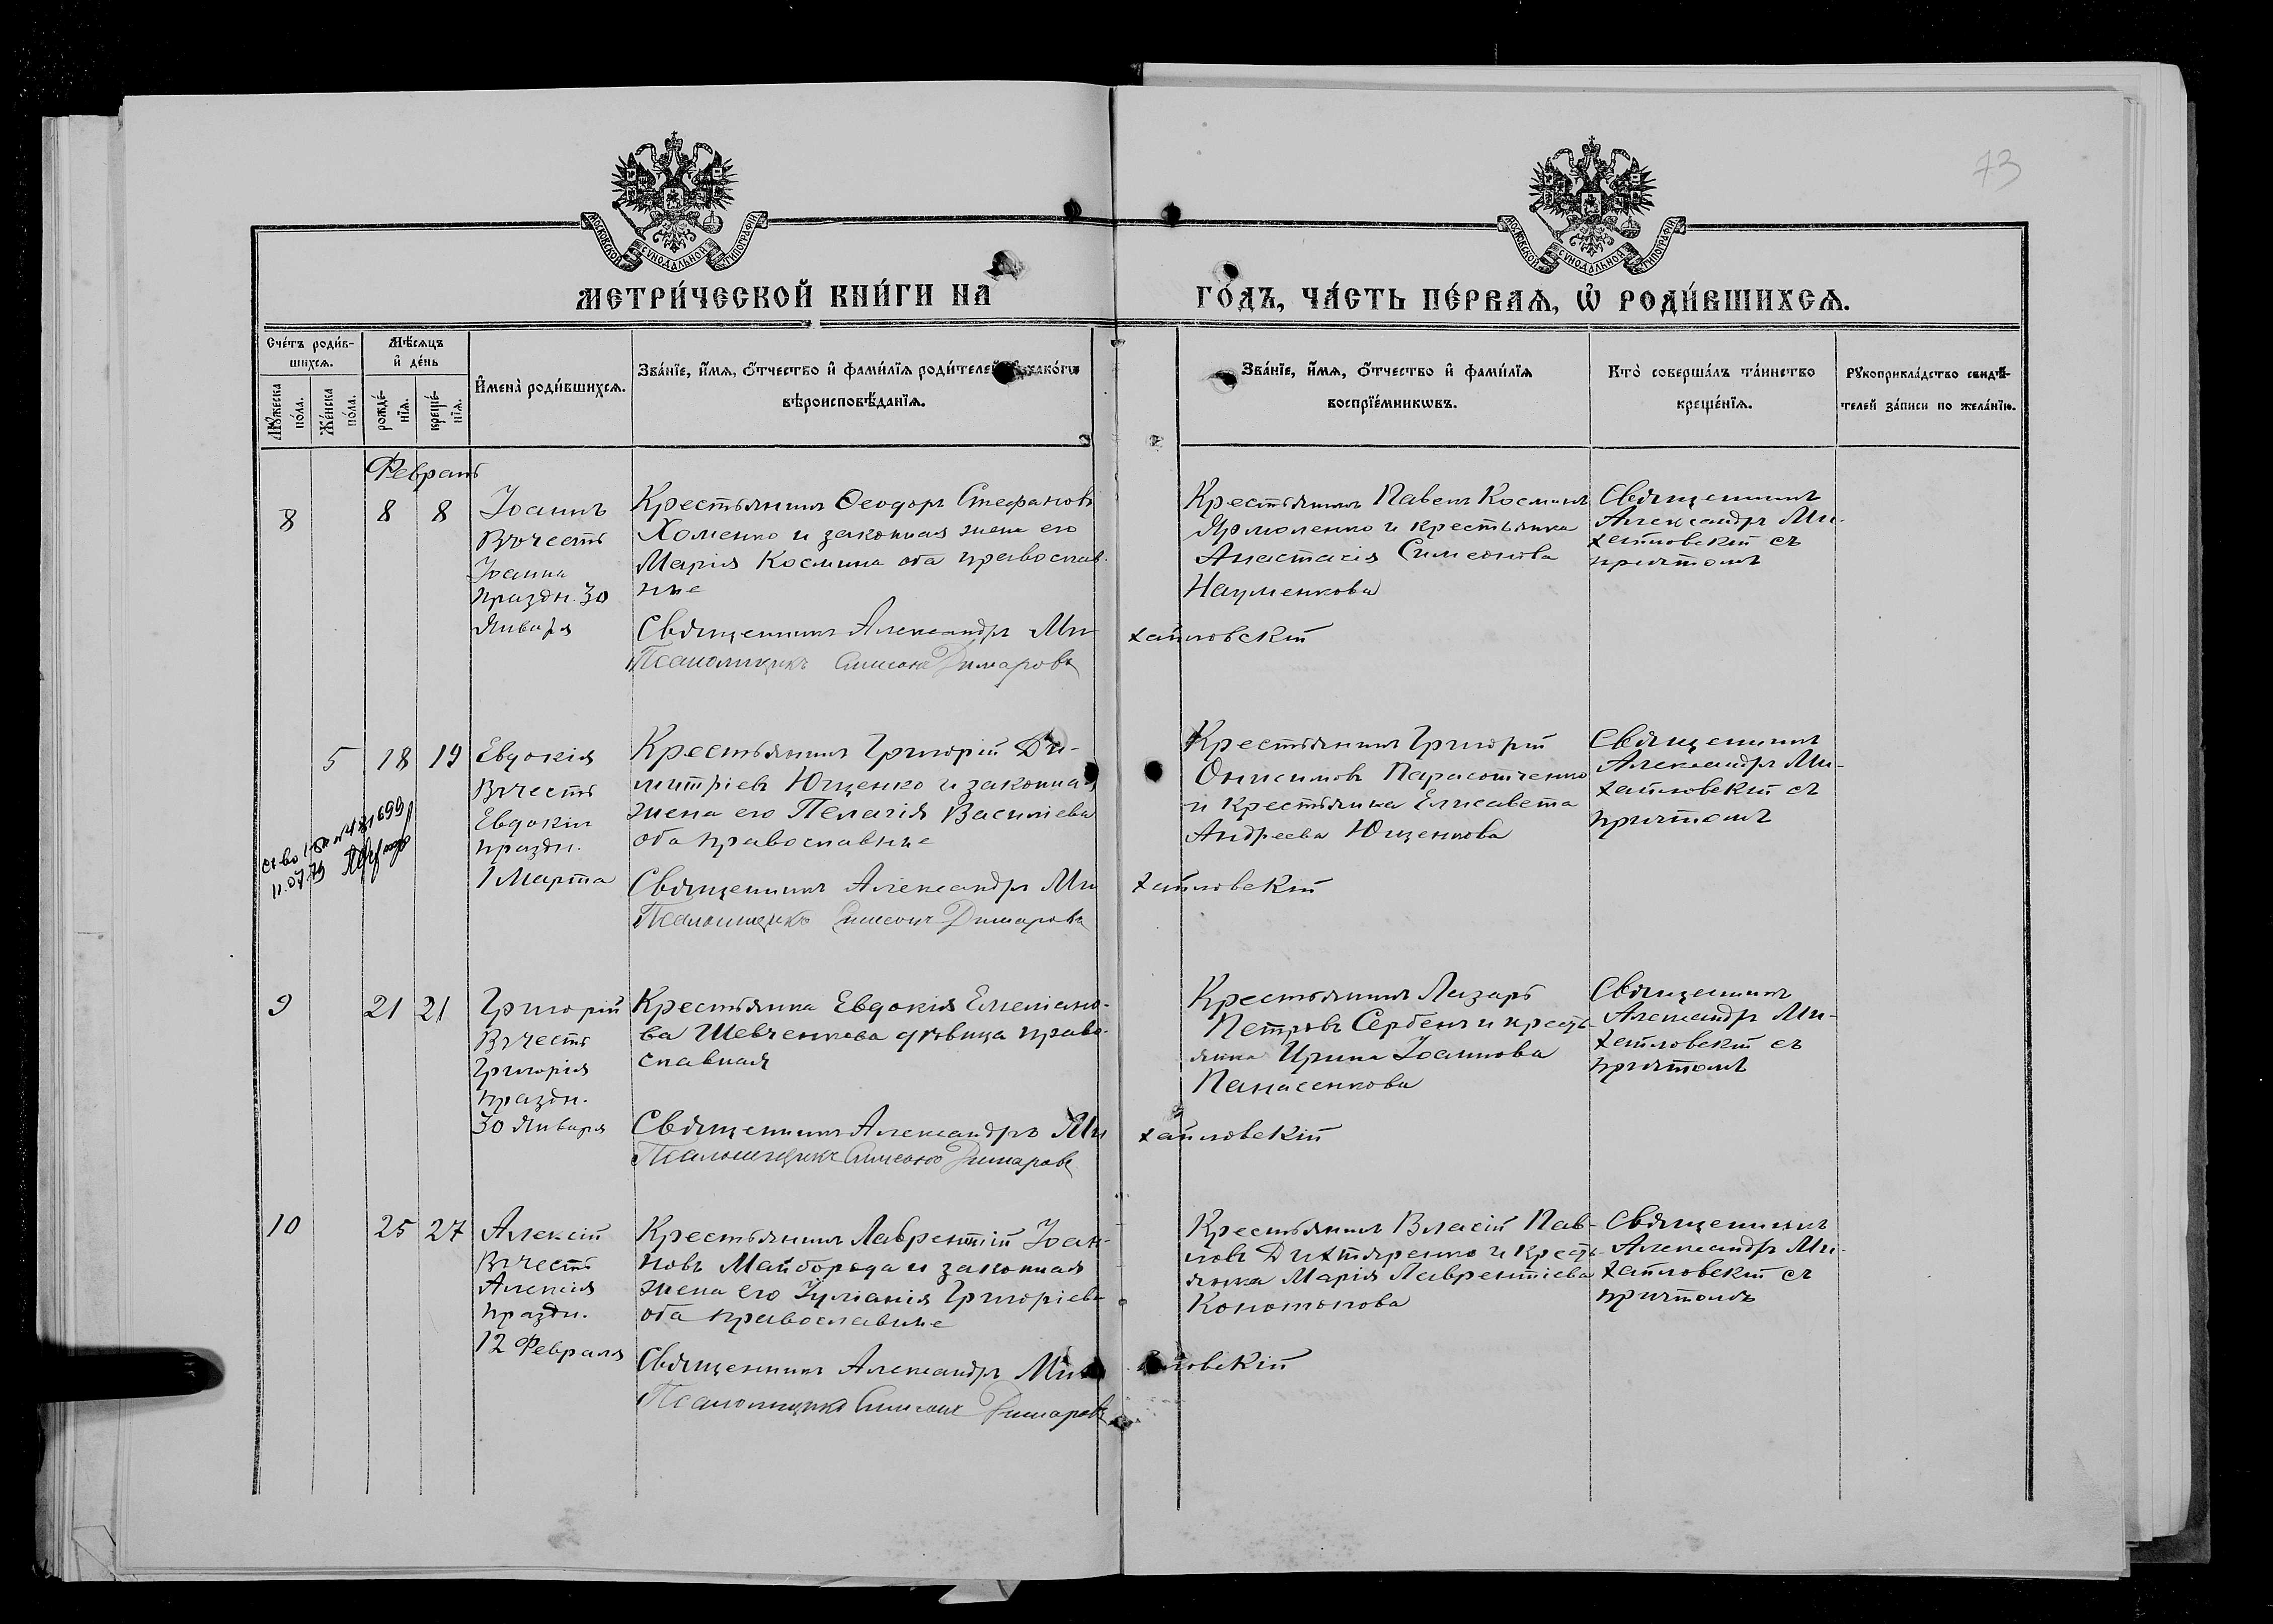 73
МОСКОВСКОЙ СѴНОДАЛЬНОЙ ТИПОГРАФІИ
МОСКОВСКОЙ СѴНОДАЛЬНОЙ ТИПОГРАФІИ
МЕТРИ́ЧЕСКОЙ КНИ́ГИ НА ГО́ДЪ, ЧА́СТЬ ПЕ́РВАѦ, Ѡ҆ РОДИ́ВШИХСѦ.
Сче́тъ роди́в-
шихсѧ.
Мꙋ́жеска по́ла.
Же́нска по́ла.
Мѣ́сѧцъ
и҆ де́нь
рожде́-
нїѧ.
креще́-
нїѧ.
И҆мена̀ роди́вшихсѧ.
Зва́нїе, и҆́мѧ, ѻ҆́тчество и҆ фами́лїѧ роди́телей,
вѣроисповѣ́данїѧ.
Зва́нїе, и҆́мѧ, ѻ҆́тчество и҆ фами́лїѧ
воспрїе́мникѡвъ.
Кто̀ соверша́лъ та́инство
креще́нїѧ.
Рꙋкоприкла́дство свидѣ́-
телей за́писи по жела́нїю.
Февраль
8 8 8
Іоаннъ
Въ честь
Іоанна
праздн. 30
Января
Крестьянинъ Ѳеодоръ Стефановъ
Хоменко и законная жена его
Марія Космина оба православ-
ные
Священникъ Александръ Михайловскій
Псаломщикъ Симеонъ Димаровъ
Крестьянинъ Павелъ Косминъ
Ярмоленко и крестьянка
Анастасія Симеонова
Науменкова
Священникъ
Александръ Ми-
хайловскій съ
причтомъ
5 18 19
11.07.79
Евдокія
Въ честь
Евдокіи
праздн.
1 Марта
Крестьянинъ Григорій Ди-
митріевъ Ющенко и законная
жена его Пелагія Василіева
оба православные
Священникъ Александръ Михайловскій
Псаломщикъ Симеонъ Димаровъ
Крестьянинъ Григорій
Онисимовъ
и крестьянка Елисавета
Андреева Ющенкова
Священникъ
Александръ Ми-
хайловскій съ
причтомъ
9 21 21
Григорій
Въ честь
Григорія
праздн.
30 Января
Крестьянка Евдокія Емеліано-
ва Шевченкова дѣвица право-
славная
Священникъ Александръ Михайловскій
Псаломщикъ Симеонъ Димаровъ
Крестьянинъ Лазарь
Петровъ Сербенъ и кресть-
янка Ирина Іоаннова
Панасенкова
Священникъ
Александръ Ми-
хайловскій съ
причтомъ
10 25 27
Алексій
Въ честь
Алексія
праздн.
12 Февраля
Крестьянинъ Лаврентій Іоан-
новъ Майборода и законная
жена его Іуліанія Григоріева
оба православные
Священникъ Александръ Михайловскій
Псаломщикъ Симеонъ Димаровъ
Крестьянинъ Власій Пав-
ловъ Дихтяренко и кресть-
янка Марія Лаврентіева
Конотопова
Священникъ
Александръ Ми-
хайловскій съ
причтомъ